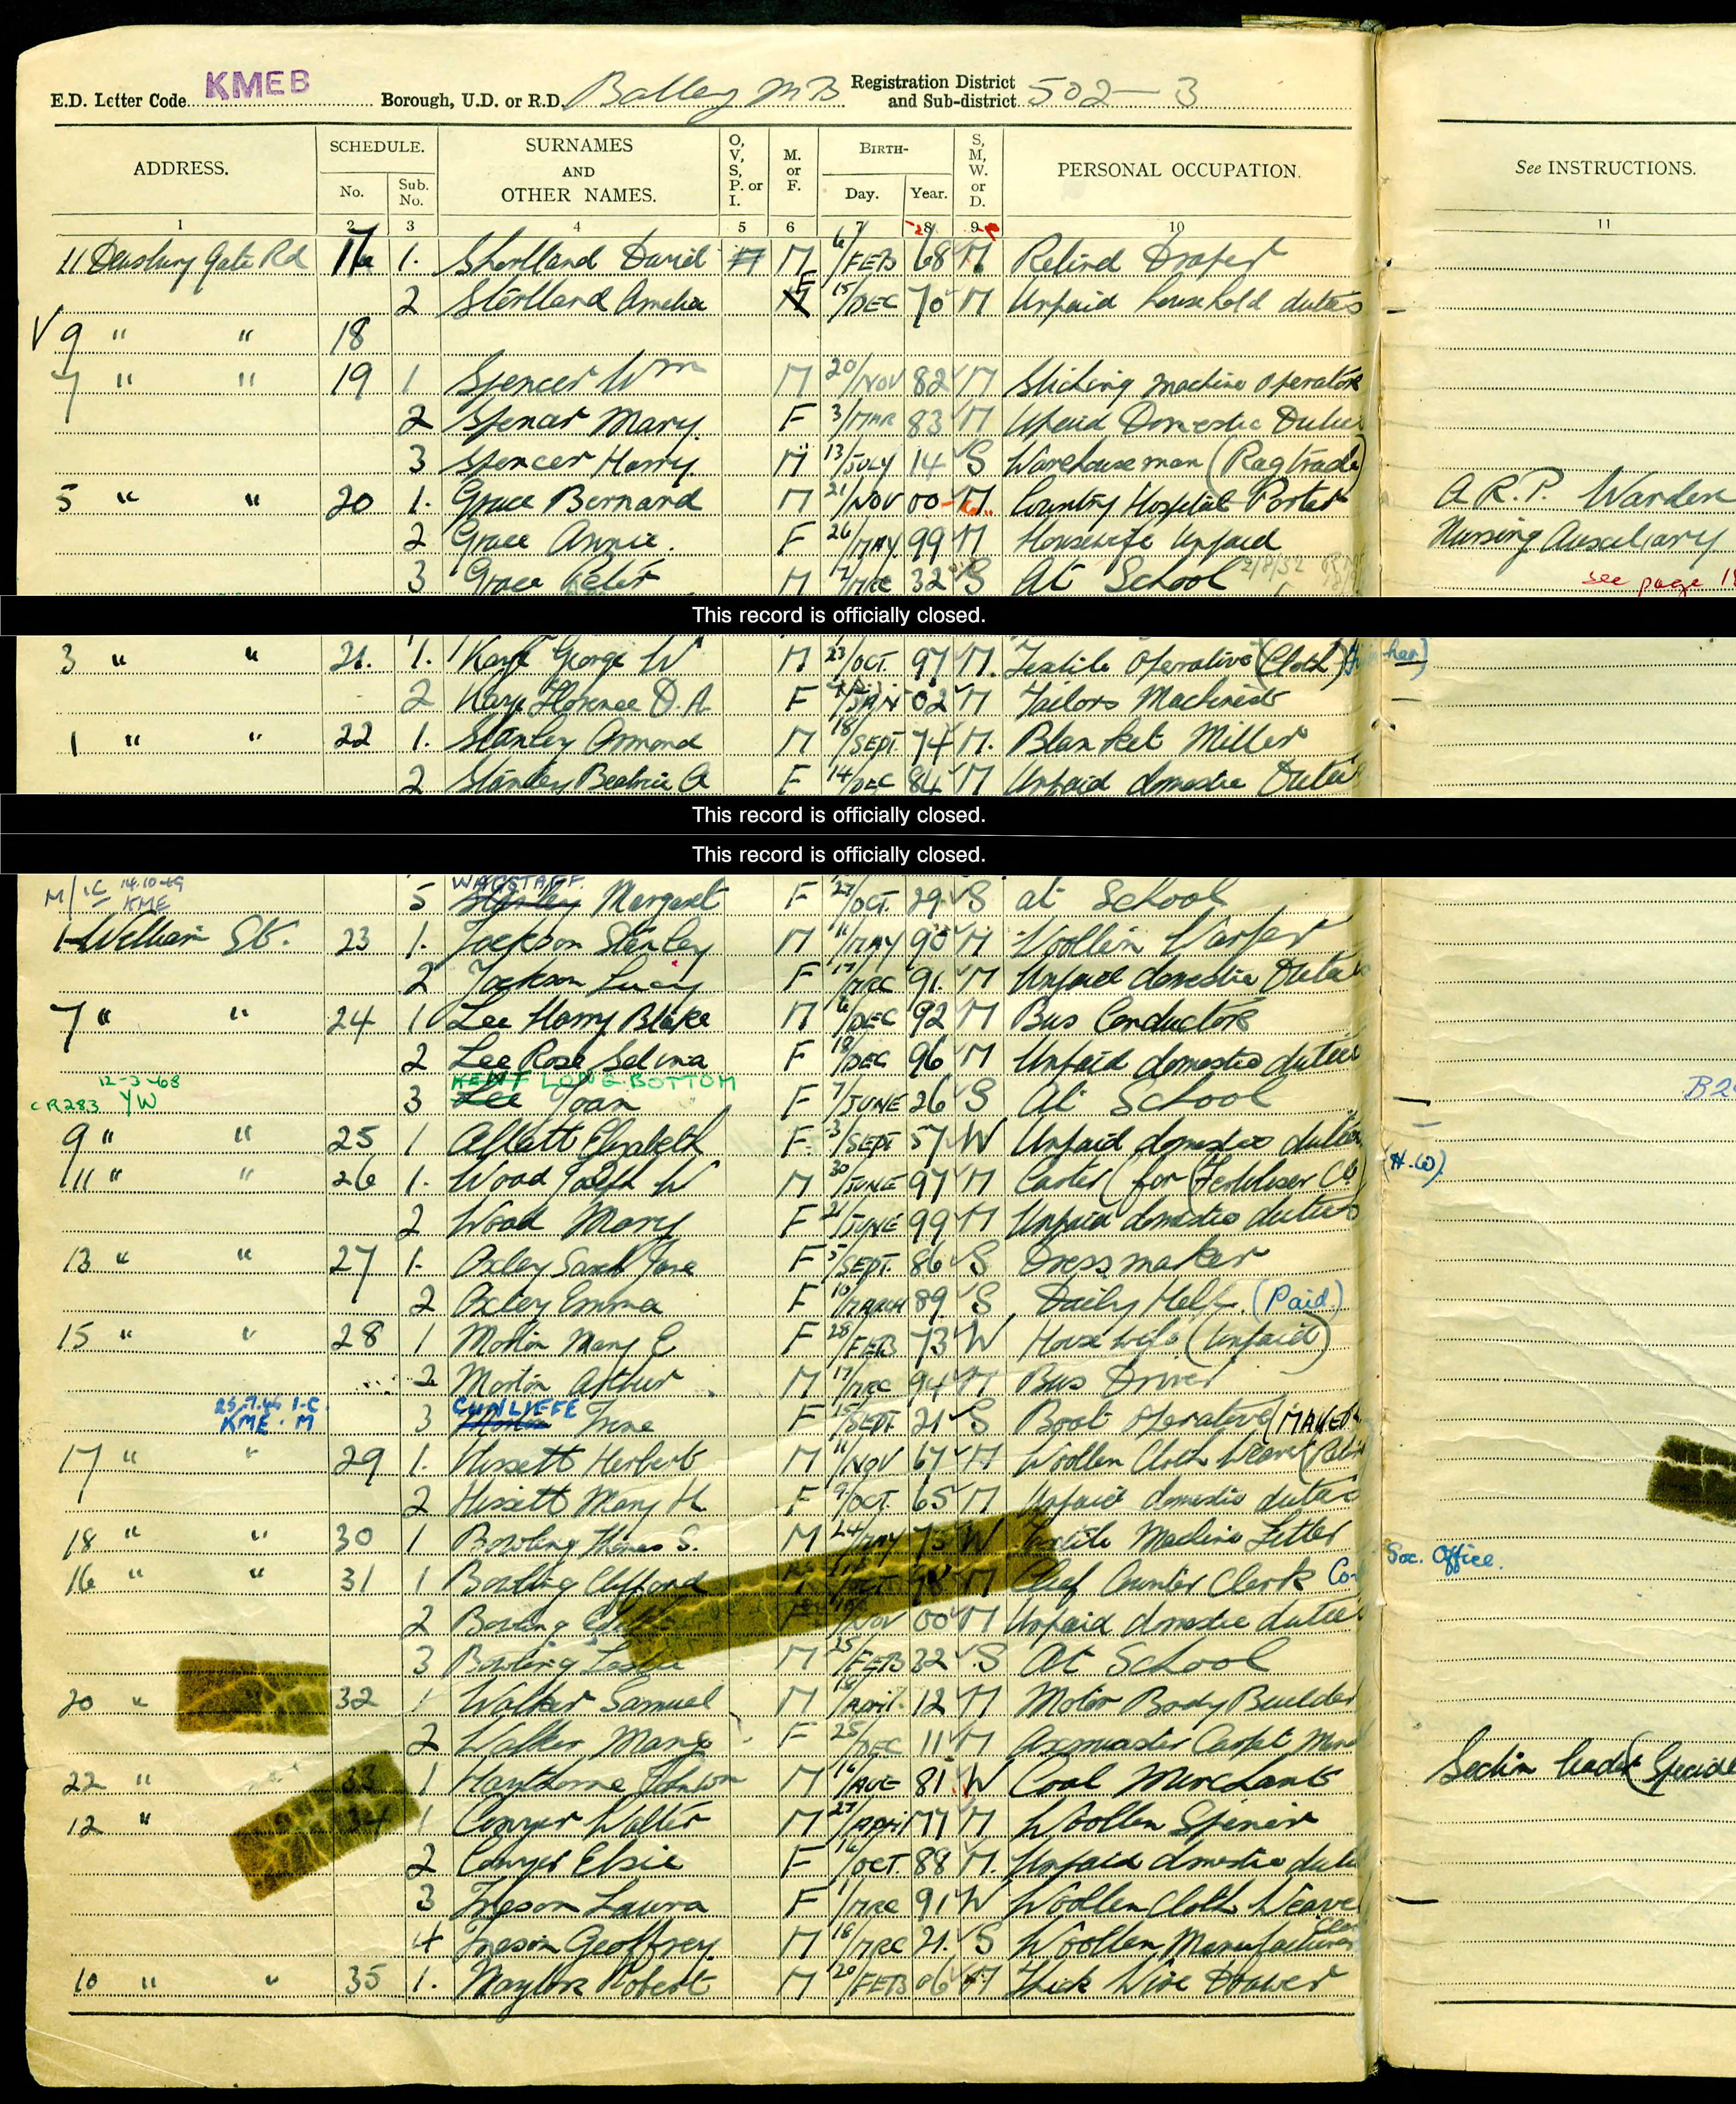 E.D. Letter Code KMEB Borough, U.D. or R.D. Batley MB Registration District and Sub-district 502-3
ADDRESS. SCHEDULE. No. Sub. No. SURNAMES AND OTHER NAMES. O, V, S, P. or I. M. or F. BIRTH- Day. Year. S, M, W. or D. PERSONAL OCCUPATION. See INSTRUCTIONS.
1 2 3 4 5 6 7 8 9 10 11
11 Dewsbury Gate Rd 17 1. David M 6/FEB 68 M Retired Draper
2 Amelia F 15/DEC 70 M Unpaid household duties
V 9 " " 18
7 " " 19 1 Spencer Wm M 20/NOV 82 M machine operator
2 Spencer Mary. F 3/MAR 83 M Domestic Duties
3 Spencer Harry. M 13/JULY 14 S Warehouseman (Rag trade)
5 " " 20 1. Grace Bernard M 21/NOV 00 M. Country Hospital Porter A R.P. Warden
2 Grace Annie. F 26/MAY 99 M Housewife Unpaid Nursing Auxiliary
3 Grace Peter M 32 S At School see page
This record is officially closed.
3 " " 21. 1. Kaye George W M 23/OCT. 97 M. Textile Operative (Cloth)
2 Kaye Florence D. A. F JAN 02 M Tailors Machinist
1 " " 22 1. Stanley Ormond M 18/SEPT. 74 M. Blanket Miller
2 Stanley Beatrice A F 14/DEC 84 M Unpaid domestic Duties
This record is officially closed.
This record is officially closed.
M/1C 14.10.49 KME WAGSTAFF.
5 Stanley Margaret F 27/OCT. 29 S at School
William St. 23 1. Jackson Stanley M 11/MAY 90 M Woollen Warper
2 Jackson Lucy F 17/MRC 91. M Unpaid domestic Duties
7 " " 24 1 Lee Harry Blake M 6/DEC 92 M Bus Conductor
2 Lee Rose Selina F 18/DEC 96 M Unpaid domestic duties
12-3-68 KENT LONGBOTTOM
CR283 YW 3 Lee Joan F 7/JUNE 26 S At School
9 " " 25 1 Allatt Elizabeth F. 3/SEPT 57 W Unpaid domestic duties
11 " " 26 1. Wood W M 30/JUNE 97 M Carter (for (Fertiliser (H.W).
2 Wood Mary F 21/JUNE 99 M Unpaid domestic duties
13 " " 27 1. Oxley Sarah Jane F 5/SEPT. 86 S Dressmaker
2 Oxley Emma F 10/MARCH 89 S Daily Help. (Paid.)
15 " " 28 1 Mary E F 28/FEB 73 W Housewife (Unpaid)
2 Arthur M 17/MRC 94 M Bus Driver
25.7.46 1-C. KME. M CUNLIFFE
3 Irene F 15/SEPT 21 S Boot Operative (MAKER
17 " " 29 1. Hissett Herbert M 11/NOV 67 M Woollen Cloth Weaver
2 Hissett Mary H. F 9/OCT. 65 M Unpaid domestic duties
18 " " 30 1 Bowling Thomas S. M 24/MAY 75 W Textile Machine Fitter
16 " " 31 1 Bowling Clifford OCT M Chief Counter Clerk Soc. Office.
2 Bowling F NOV 00 M Unpaid domestic duties
3 Bowling Leslie M 25/FEB 32 S At School
20 " 32 1 Walker Samuel M APRIL 12 M Motor Body Builder
2 Walker F 25/DEC 11 M Axminster Carpet
22 " 33 1 M 16/AUG 81 W Coal Merchants Section leader (Special
12 " 34 1 Walter M 27/APRIL 77 M Woollen
2 Elsie F 16/OCT. 88 M. Unpaid domestic duties
3 Laura F 1/MRC 91 W Woollen Cloth Weaver
4 Geoffrey. M 18/MRC 21. S Woollen Manufacturer
10 " " 35 1. Naylor Robert M 20/FEB 06 M Thick Wire Drawer